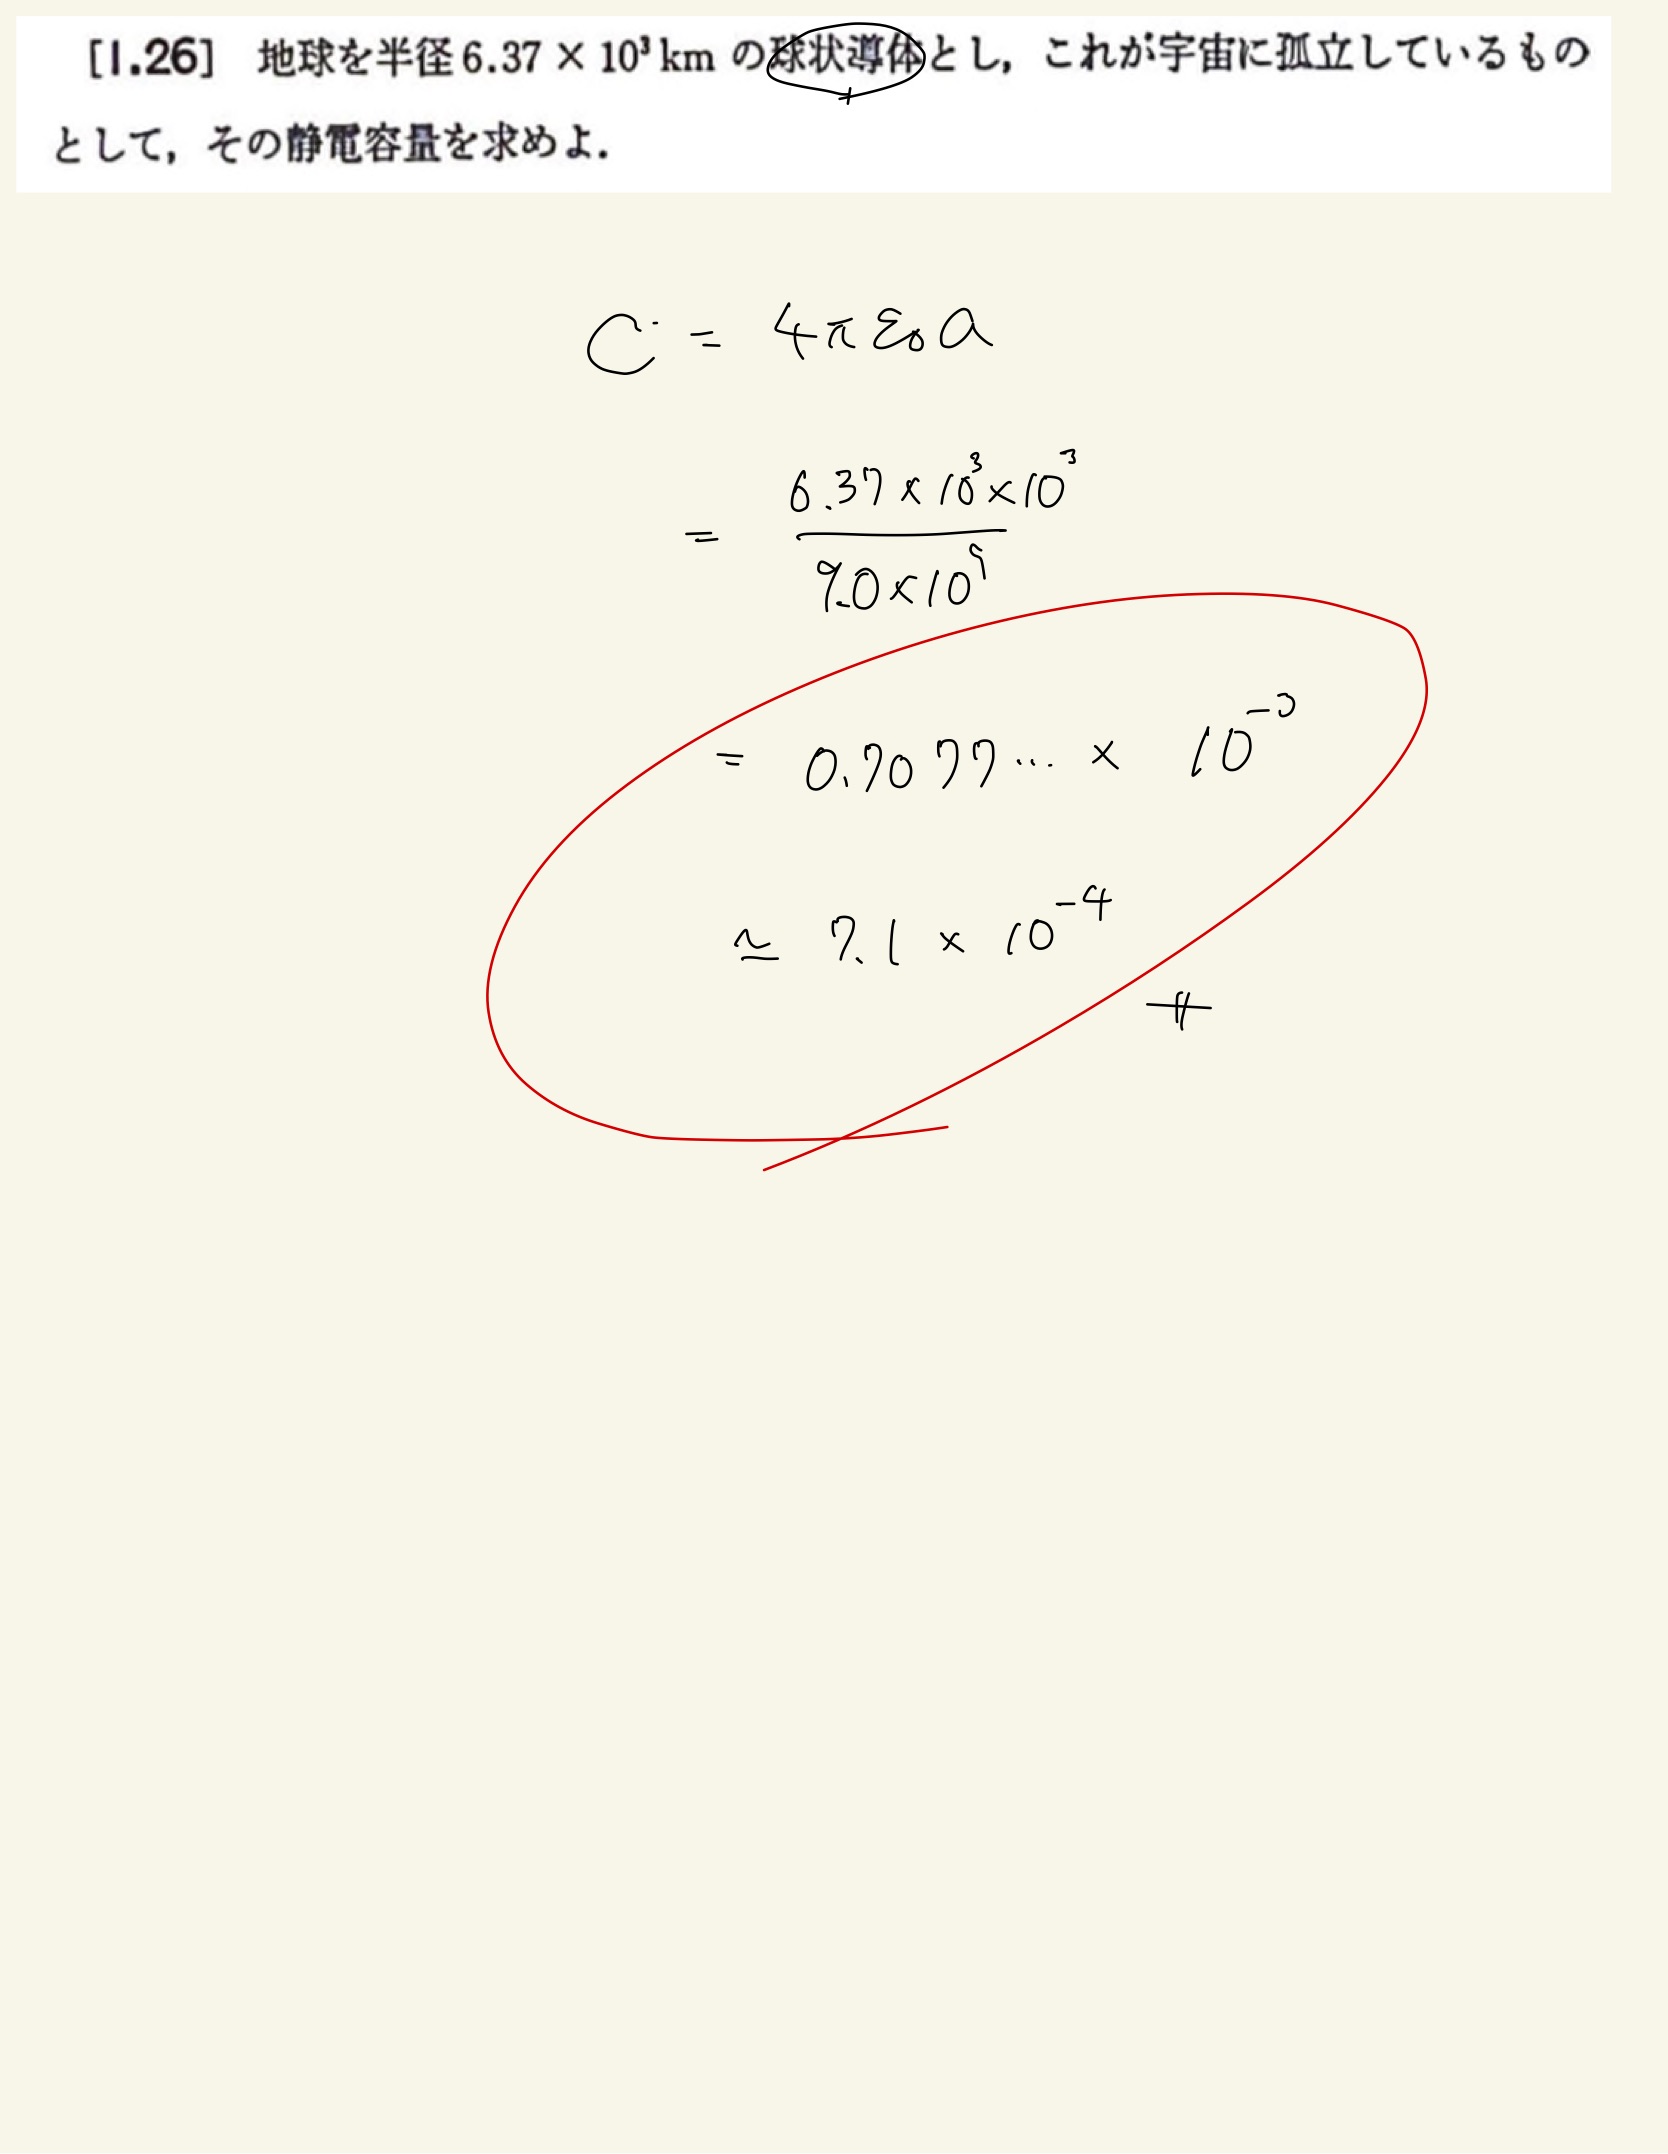 [1.26] 地球を半径 6.37 × 10³ km の球状導体とし，これが宇宙に孤立しているもの
として，その静電容量を求めよ．
C = 4πε₀a
= 6.37 × 10³ × 10³ / 9.0 × 10⁹
= 0.7077… × 10⁻³
≃ 7.1 × 10⁻⁴